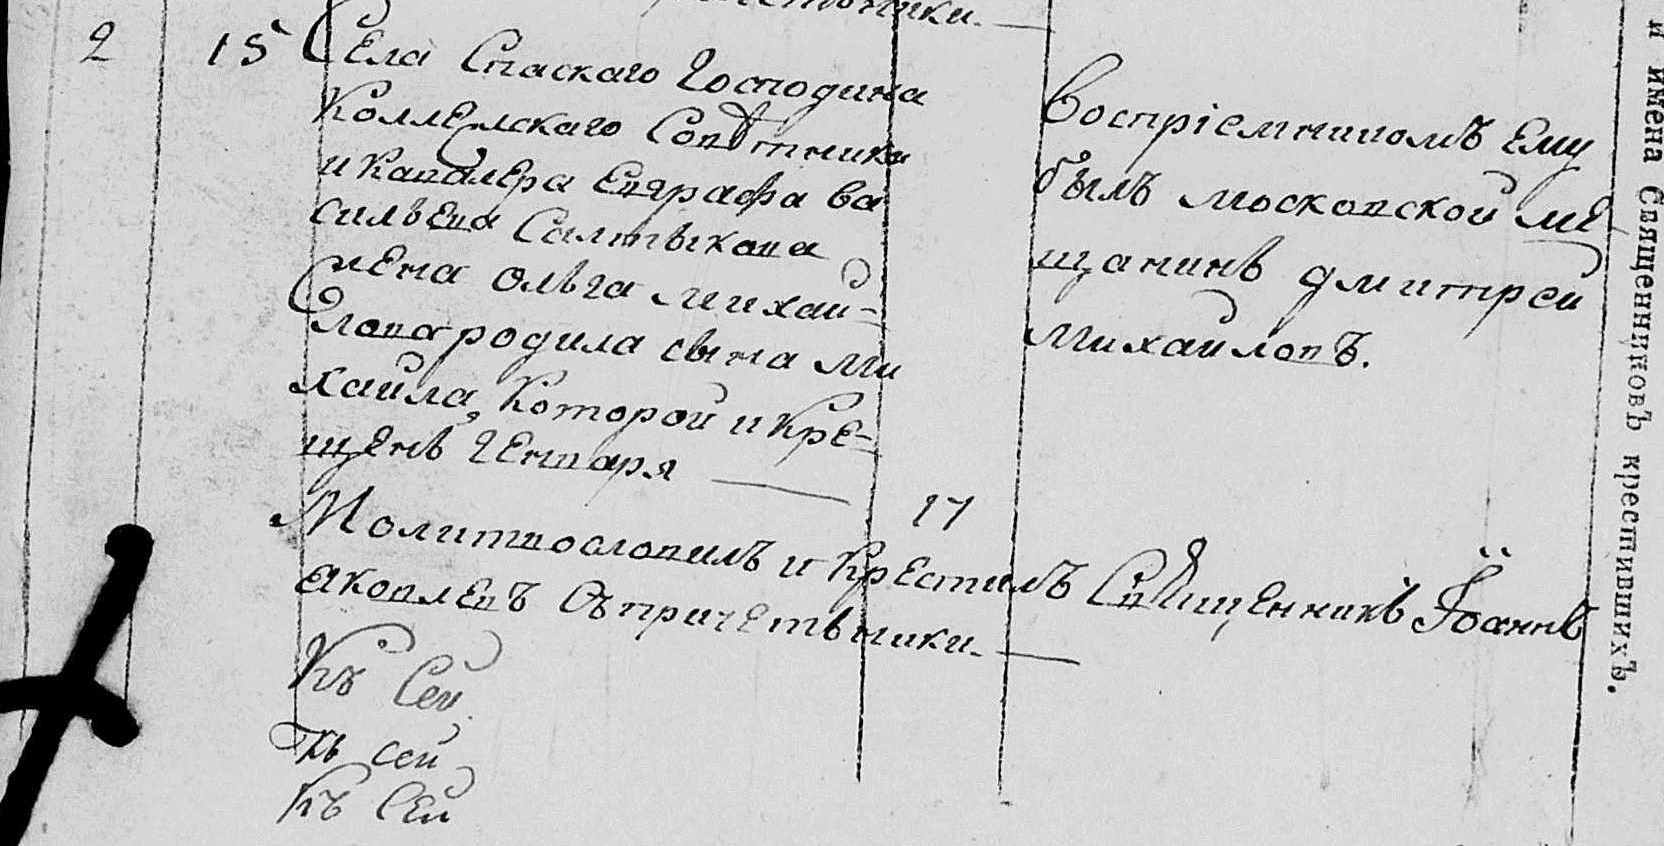 2 15 Села Спаскаго Господина
Коллежскаго Советника
и Кавалера Евграфа Ва
сильева Салтыкова
жена Ольга Михай-
лова родила сына Ми
хайла, Которой и Кре-
щенъ Генваря — 17
Воспріемникомъ Ему
былъ московской ме-
щанинъ дмитрей
Михайловъ.
Молитвословилъ и Крестилъ Священникъ Іоаннъ
Яковлевъ Съ причетники. —
Къ Сей
Къ сей
Къ Сей
и имена Священниковъ крестившихъ.